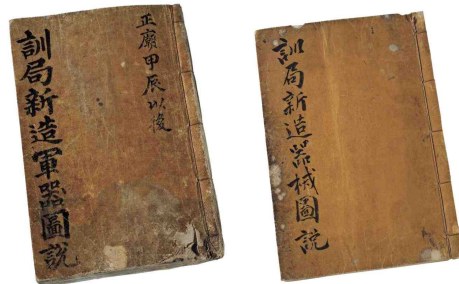 正廟甲辰以後
訓局新造軍器圖說
訓局新造器械圖說